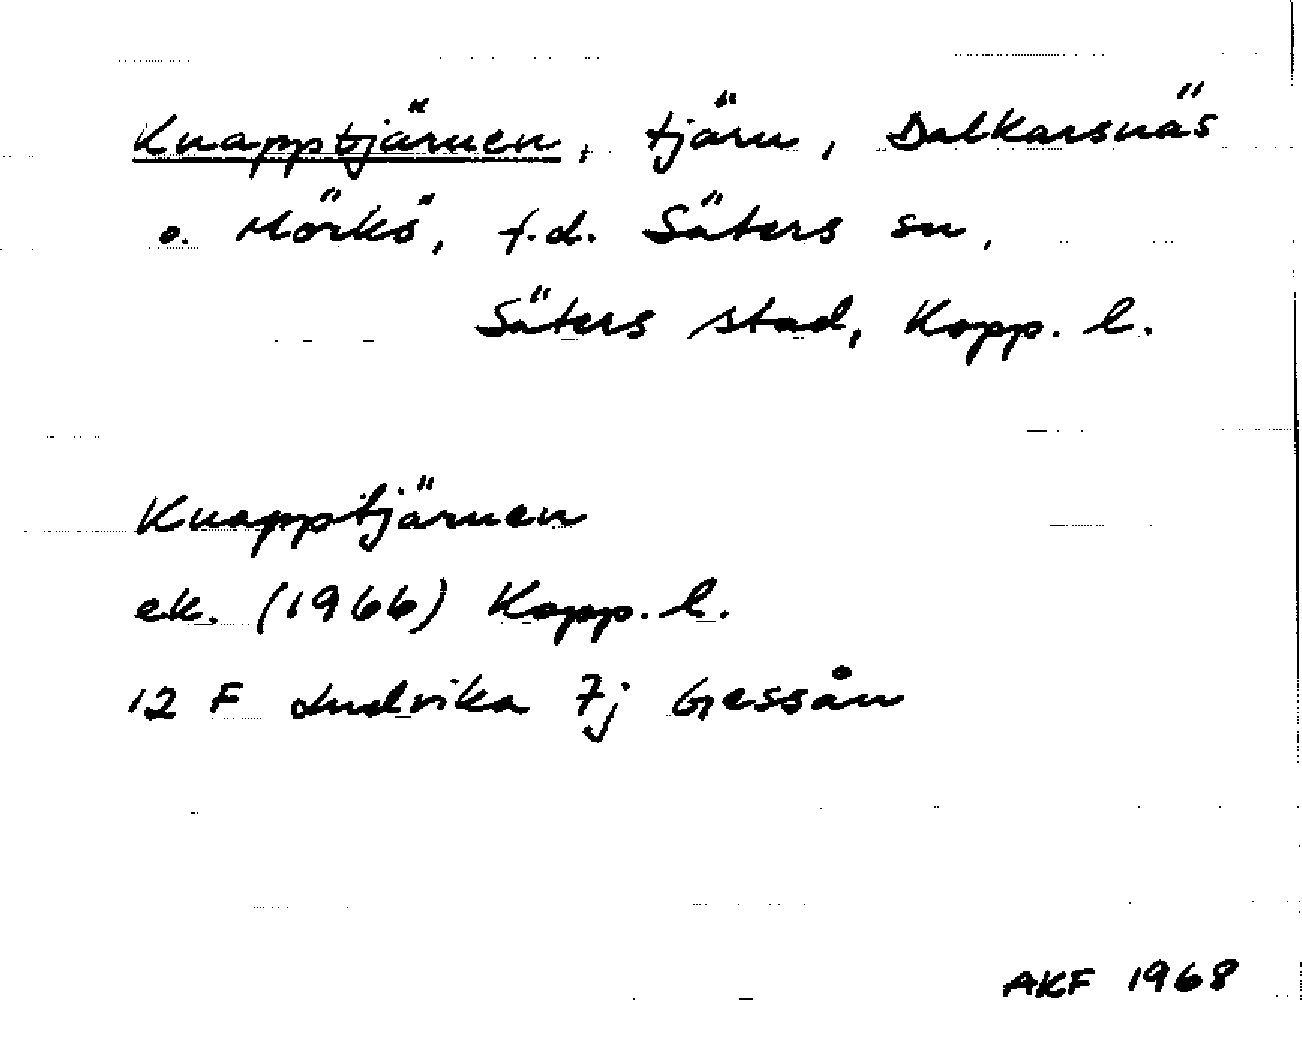 Knapptjärnen, tjärn, Dalkarsnäs
o. Mörkö, f.d. Säters sn,
Säters stad, Kopp. l.
Knapptjärnen
ek. (1966) Kopp. l.
12 F Ludvika 7j Gessån
AKF 1968